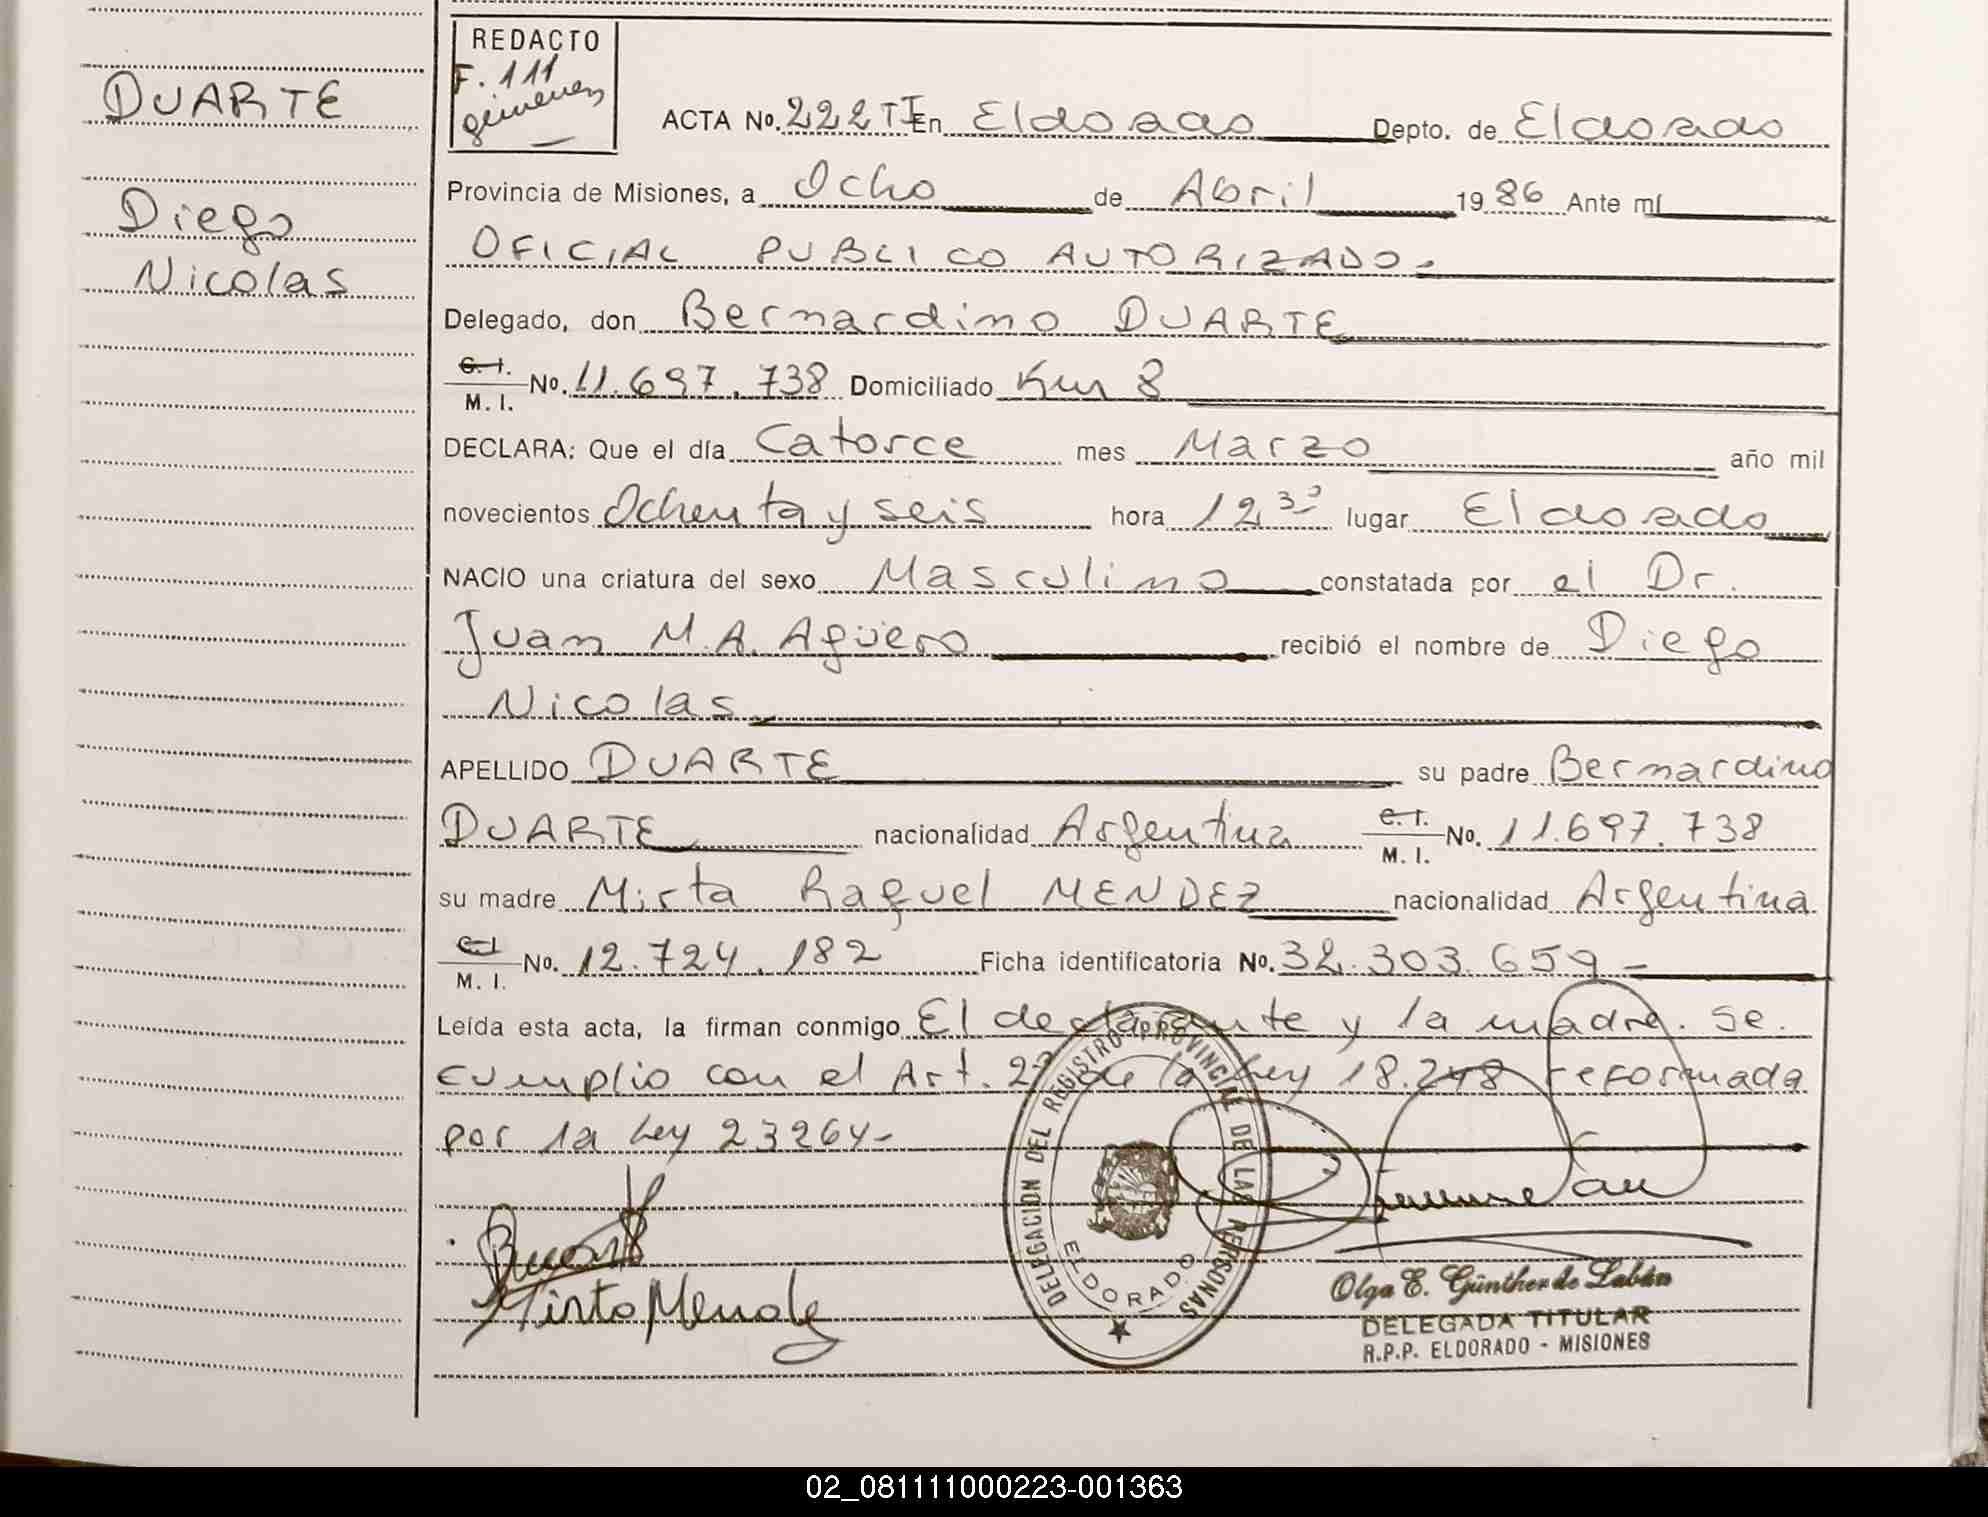 DUARTE
Diego
Nicolas
REDACTO
F. 111
gimenez
ACTA No. 222 TI En Eldorado Depto. de Eldorado
Provincia de Misiones, a Ocho de Abril 1986 Ante mí
OFICIAL PUBLICO AUTORIZADO.
Delegado, don Bernardino DUARTE
C. I. M. I. No. 11.697.738 Domiciliado Km 8
DECLARA: Que el día Catorce mes Marzo año mil
novecientos Ochenta y seis hora 12,30 lugar Eldorado
NACIO una criatura del sexo Masculino constatada por el Dr.
Juan M.A. Agüero recibió el nombre de Diego
Nicolas
APELLIDO DUARTE su padre Bernardino
DUARTE nacionalidad Argentina C. I. M. I. No. 11.697.738
su madre Mirta Raquel MENDEZ nacionalidad Argentina
C. I. M. I. No. 12.724.182 Ficha identificatoria No. 32.303.659-
Leída esta acta, la firman conmigo El declarante y la madre. Se
cumplio con el Art. 2º de la Ley 18.248 reformada
por la Ley 23264-
DELEGACION DEL REGISTRO PROVINCIAL DE LAS PERSONAS
ELDORADO
Mirta Mendez
Olga E. Günther de Labán
DELEGADA TITULAR
R.P.P. ELDORADO - MISIONES
02_081111000223-001363